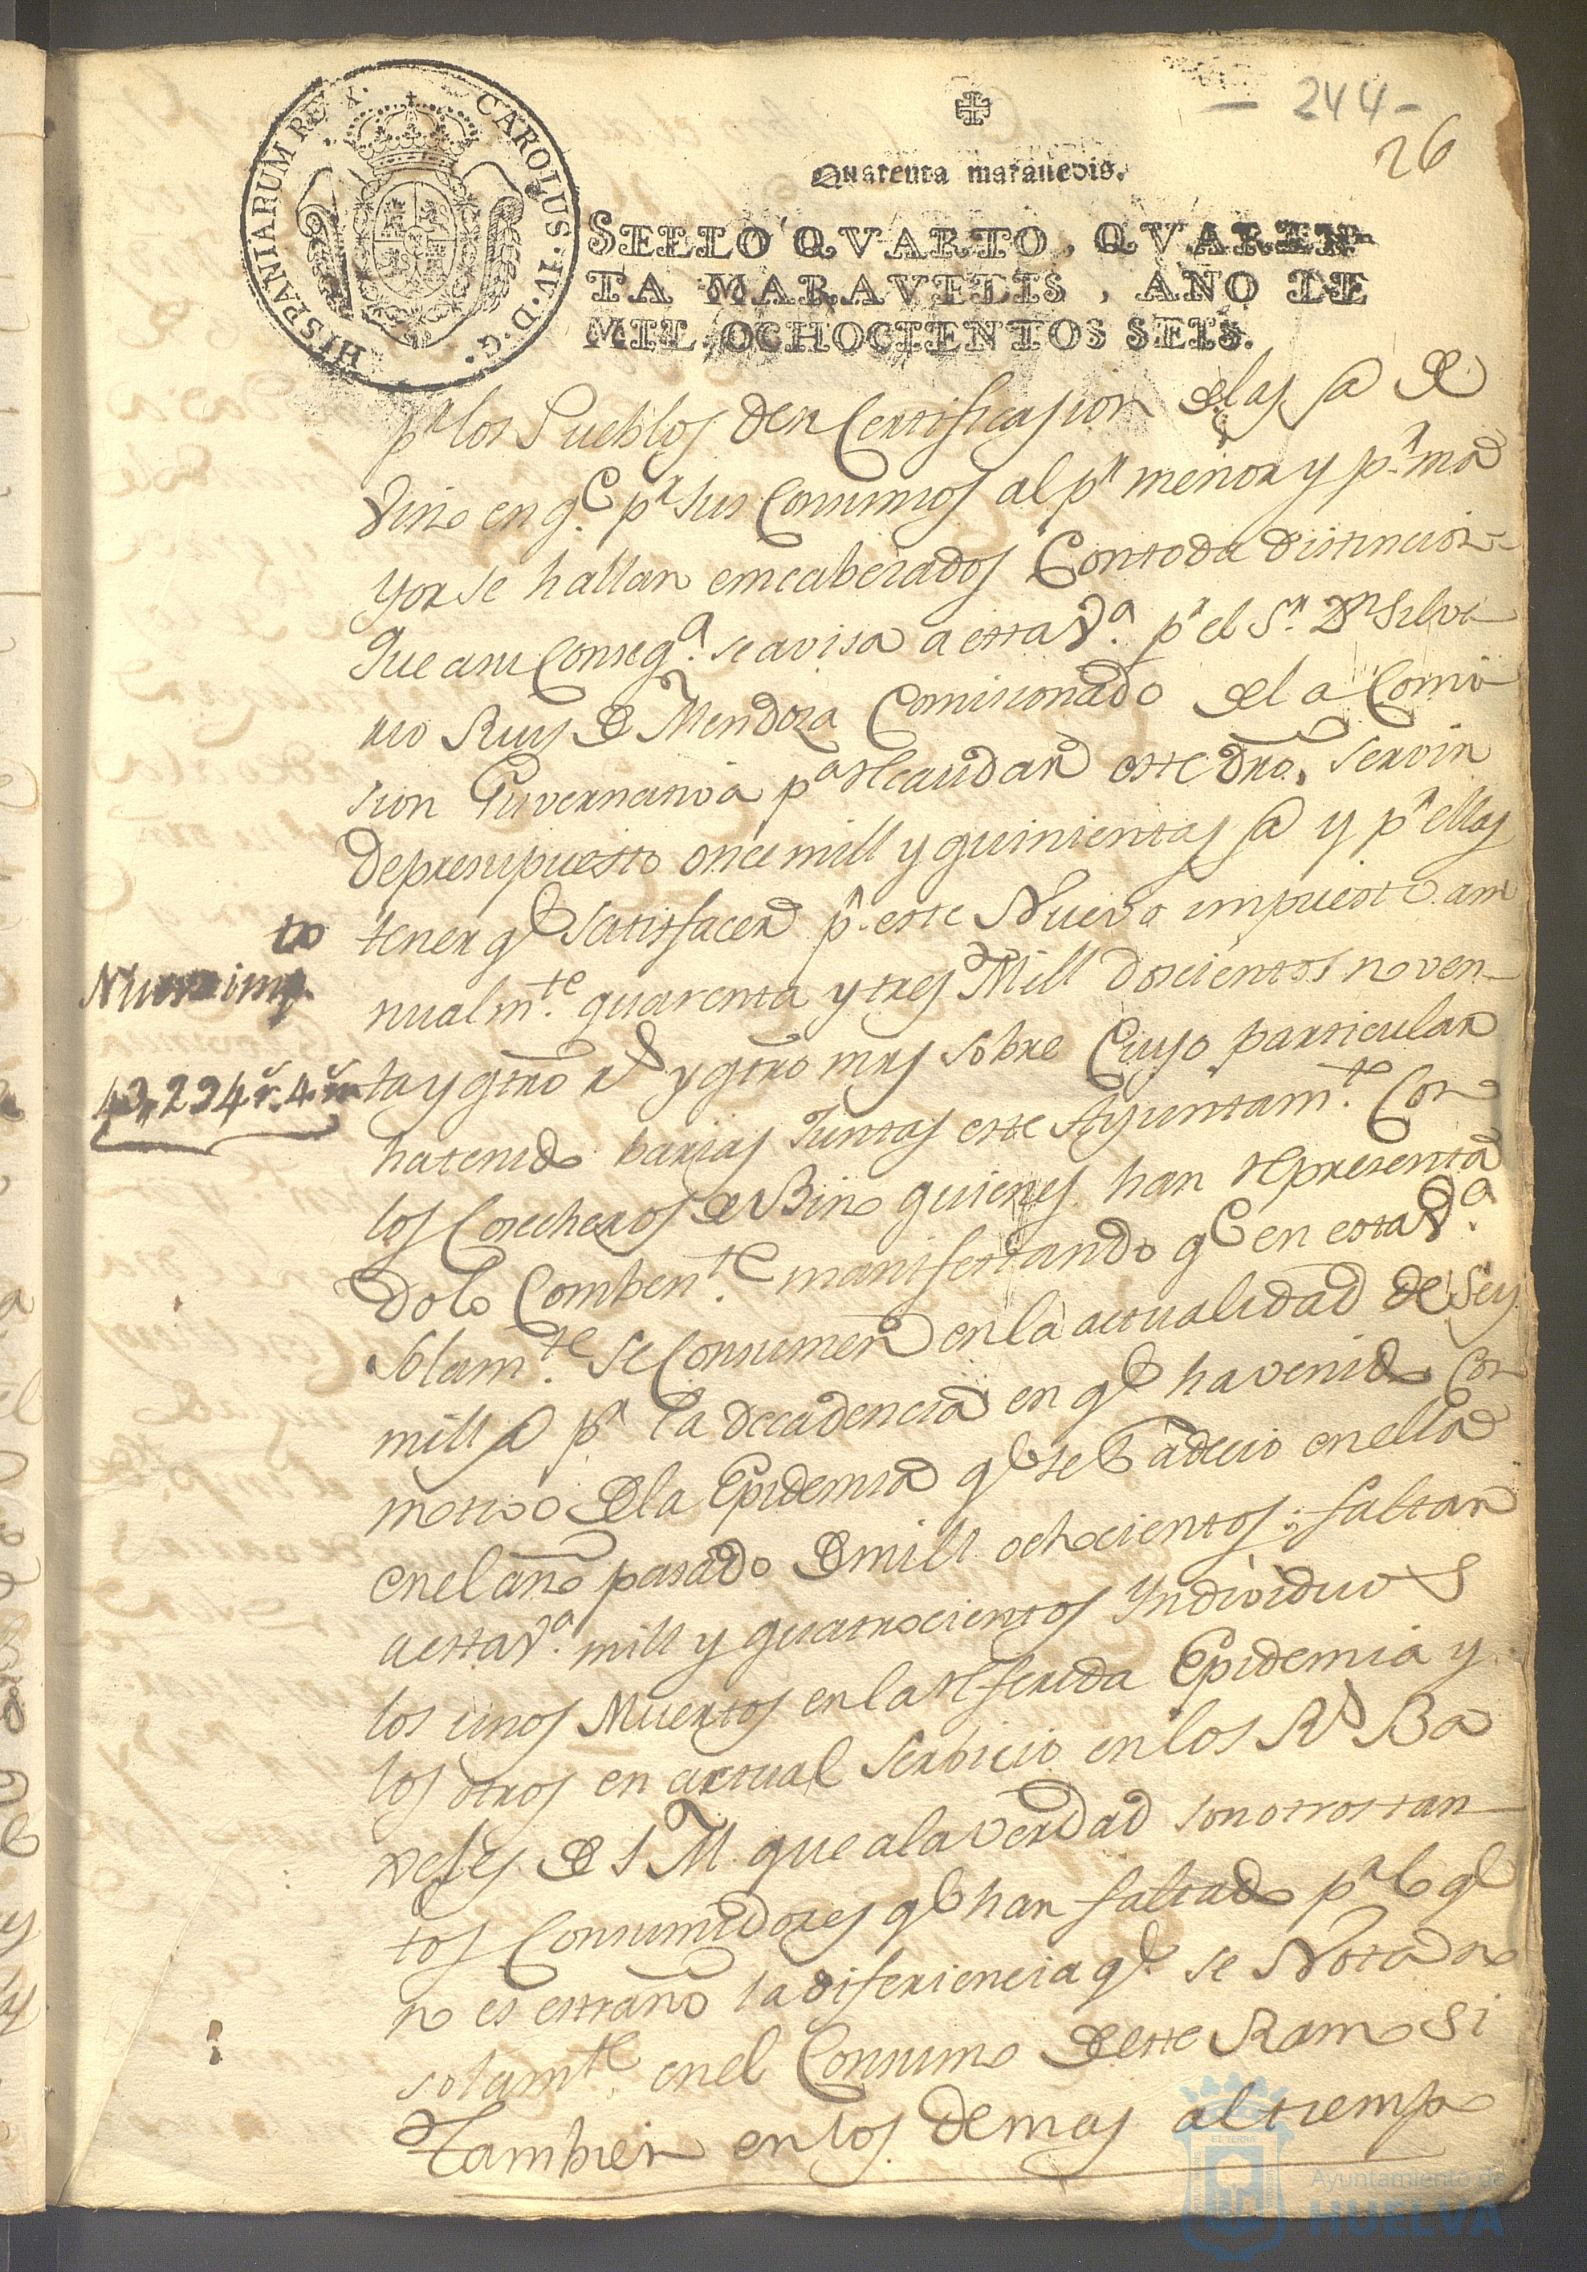 - 244 -
26
HISPANIARUM REX. CAROLUS·IV·D·G·
Quarenta maravedis.
SELLO QVARTO, QVAREN-
TA MARAVEDIS, AÑO DE
MIL OCHOCIENTOS SEIS.
pr los Pueblos den Certificasion de las @ de
Vino en qe pr sus Consumos al pr menor y pr ma
yor se hallan emcabesados Con toda distincion
que a su Conseqa. se avisa a esta Va. pr el Sr. Dn Silve
rio Ruis de Mendoza Comisionado de la Comi
sion Guvernativa pa recaudar este dro. servir
de presupuesto once mill y quinientas @ y pr ellas
tener qe satisfacer pr. este Nuevo impuesto an
to
Nuevo imp.
nualmte. quarenta y tres Mill doscientos noven-
ta y qtro rs y qtro mrs sobre Cuyo particular
43,,294 rs. 4 ms
ha tenido barias Juntas este Ayuntamte. Con
los Cosecheros de Bino quienes han representa
dolo Combente. manifestando qe en esta Va.
Solamte. se Consumen en la actualidad de seis
mill @ pr la decadencia en qe ha venido Con
motivo de la Epidemia qe se Padecio en ella
en el año pasado de mill ochocientos; faltan
a esta Va. mill y quatrocientos Yndividuos
los unos Muertos en la referida Epidemia y
los otros en actual serbicio en los Rs Ba
xeles de S M. que a la verdad son otros tan-
tos Consumidores qe han faltado pr lo qe
no es estraño la diferiencia qe. se Nota no
solamte. en el Consumo de este Ramo si
tambien en los demas al tiempo
EL TERRA
Ayuntamiento de
HUELVA